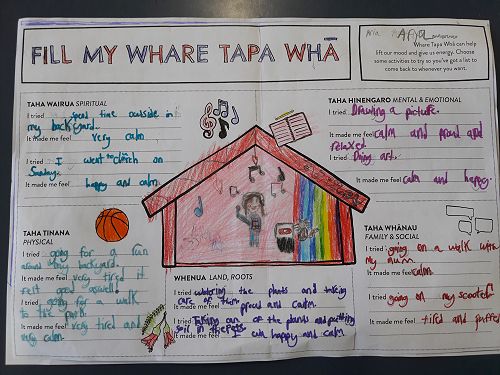 FILL MY WHARE TAPA WHĀ
Whare Tapa Whā can help
lift our mood and give us energy. Choose
some activities to try so you've got a list to
come back to whenever you want.
TAHA WAIRUA SPIRITUAL
I tried spend time outside in
my backyard.
It made me feel very calm
I tried I went to church on
Sunday.
It made me feel happy and calm.
TAHA HINENGARO MENTAL & EMOTIONAL
I tried Drawing a picture.
It made me feel calm and proud and
relaxed.
I tried Doing art.
It made me feel calm and happy.
TAHA TINANA
PHYSICAL
I tried going for a run
around my backyard
It made me feel very tired it
felt good aswell!
I tried going for a walk
to the park.
It made me feel very tired and
very calm
WHENUA LAND, ROOTS
I tried watering the plants and taking
care of them
It made me feel proud and calm.
I tried Taking care of the plants and putting
soil in the pots.
It made me feel I am happy and calm
TAHA WHĀNAU
FAMILY & SOCIAL
I tried going on a walk with
my mum.
It made me feel calm.
I tried going on my scooter
It made me feel tired and puffed